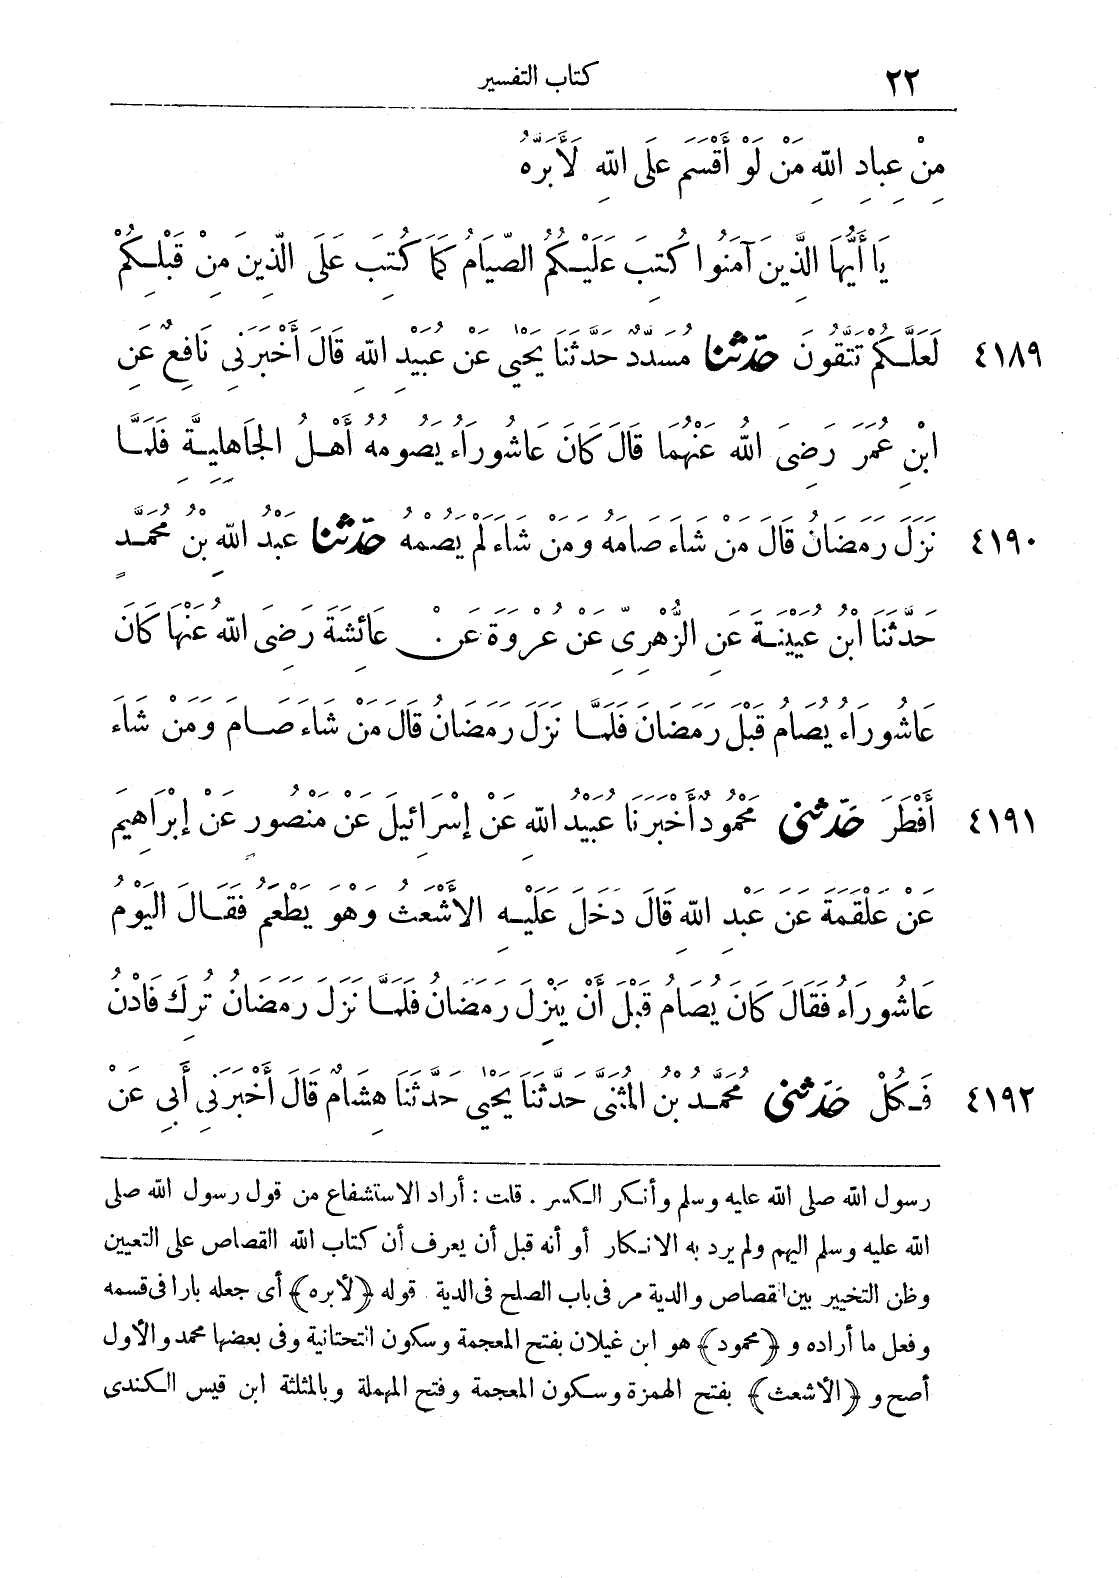 ٢٢ كتاب التفسير
مِنْ عِبَادِ اللهِ مَنْ لَوْ أَقْسَمَ عَلَى اللهِ لَأَبَرَّهُ
يَا أَيُّهَا الَّذِينَ آمَنُوا كُتِبَ عَلَيْكُمُ الصِّيَامُ كَمَا كُتِبَ عَلَى الَّذِينَ مِنْ قَبْلِكُمْ
٤١٨٩ لَعَلَّكُمْ تَتَّقُونَ حَدَّثَنَا مُسَدَّدٌ حَدَّثَنَا يَحْيَى عَنْ عُبَيْدِ اللهِ قَالَ أَخْبَرَنِي نَافِعٌ عَنِ
ابْنِ عُمَرَ رَضِيَ اللهُ عَنْهُمَا قَالَ كَانَ عَاشُورَاءُ يَصُومُهُ أَهْلُ الْجَاهِلِيَّةِ فَلَمَّا
٤١٩٠ نَزَلَ رَمَضَانُ قَالَ مَنْ شَاءَ صَامَهُ وَمَنْ شَاءَ لَمْ يَصُمْهُ حَدَّثَنَا عَبْدُ اللهِ بْنُ مُحَمَّدٍ
حَدَّثَنَا ابْنُ عُيَيْنَةَ عَنِ الزُّهْرِيِّ عَنْ عُرْوَةَ عَنْ عَائِشَةَ رَضِيَ اللهُ عَنْهَا كَانَ
عَاشُورَاءُ يُصَامُ قَبْلَ رَمَضَانَ فَلَمَّا نَزَلَ رَمَضَانُ قَالَ مَنْ شَاءَ صَامَ وَمَنْ شَاءَ
٤١٩١ أَفْطَرَ حَدَّثَنِي مَحْمُودٌ أَخْبَرَنَا عُبَيْدُ اللهِ عَنْ إِسْرَائِيلَ عَنْ مَنْصُورٍ عَنْ إِبْرَاهِيمَ
عَنْ عَلْقَمَةَ عَنْ عَبْدِ اللهِ قَالَ دَخَلَ عَلَيْهِ الْأَشْعَثُ وَهْوَ يَطْعَمُ فَقَالَ الْيَوْمُ
عَاشُورَاءُ فَقَالَ كَانَ يُصَامُ قَبْلَ أَنْ يَنْزِلَ رَمَضَانُ فَلَمَّا نَزَلَ رَمَضَانُ تُرِكَ فَادْنُ
٤١٩٢ فَكُلْ حَدَّثَنِي مُحَمَّدُ بْنُ الْمُثَنَّى حَدَّثَنَا يَحْيَى حَدَّثَنَا هِشَامٌ قَالَ أَخْبَرَنِي أَبِي عَنْ
رسول الله صلى الله عليه وسلم وأنكر الكسر . قلت : أراد الاستشفاع من قول رسول الله صلى
الله عليه وسلم اليهم ولم يرد به الانكار أو أنه قبل أن يعرف أن كتاب الله القصاص على التعيين
وظن التخيير بين القصاص والدية مر فى باب الصلح فى الدية قوله ﴿لأبره﴾ أى جعله بارا فى قسمه
وفعل ما أراده و ﴿محمود﴾ هو ابن غيلان بفتح المعجمة وسكون التحتانية وفى بعضها محمد والأول
أصح و ﴿الأشعث﴾ بفتح الهمزة وسكون المعجمة وفتح المهملة وبالمثلثة ابن قيس الكندى